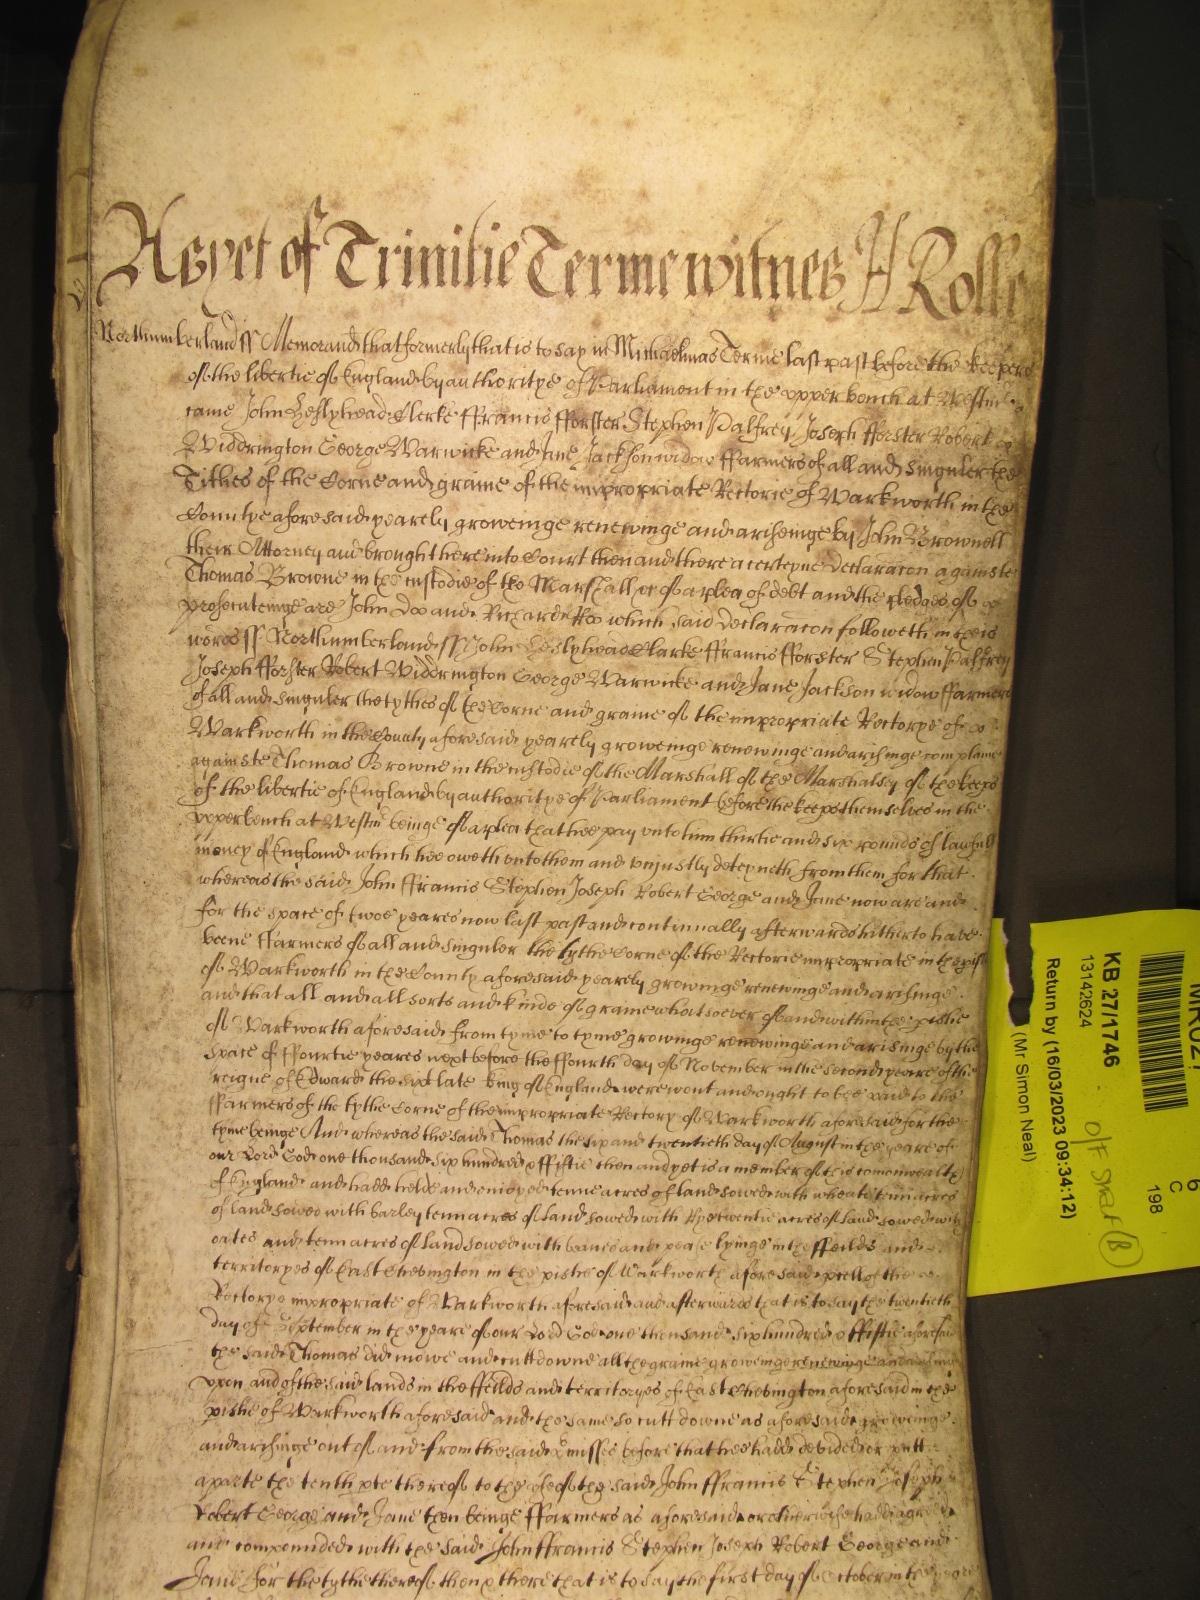 As yet of Trinitie Terme witnes H Rolle
Northumberland ss Memorand that formerly that is to say in Michaelmas Terme last past before the keepers
of the libertie of England by authoritye of Parliament in the upper bench at Westm
came John Clerke ffrancis fforster Stephen Palfrey Joseph fforster Robert
Widdrington George Warwicke and Jane Jackson widdow ffarmers of all and singuler the
Tithes of the Corne and graine of the impropriate Rectorie of Warkworth in the
Countye aforesaid yearely groweinge renewinge and ariseinge by John Brownell
their Attorney and brought here into Court then and there a certeyne declaracon againste
Thomas Browne in the custodie of the Marshall &c of a plea of debt and the pledges of
prosecuteinge are John Doo and Richard Roo which said declaracon followeth in theis
words ss Northumberland ss John Clarke ffrancis fforster Stephen Palfrey
Joseph fforster Robert Widdrington George Warwicke and Jane Jackson widow ffarmers
of all and singuler the tythes of the Corne and graine of the impropriate Rectorye of
Warkworth in the County aforesaid yearely groweinge renewinge and arisinge complaine
againste Thomas Browne in the custodie of the Marshall of the Marshalsey of the keeps
of the libertie of England by authoritye of Parliament before the keeps themselves in the
upper bench at Westm beinge of a plea that hee pay unto him thirtie and six pounds of lawfull
money of England which hee oweth unto them and unjustly deteyneth from them for that
whereas the said John ffrancis Stephen Joseph Robert George and Jane now are and
for the space of twoe yeares now last past and continually afterwards hitherto have
beene ffarmers of all and singuler the tythe Corne of the Rectorie impropriate in the pish
of Warkworth in the County aforesaid yearely growinge renewinge and arisinge
and that all and all sorts and kinde of graine whatsoever of and within the pishe
of Warkworth aforesaid from tyme to tyme growinge renewinge and arisinge by the
space of ffourtie yeares next before the ffourth day of November in the second yeare of the
reigne of Edward the sixt late king of England were wont and ought to bee paid to the
ffarmers of the tythe Corne of the impropriate Rectory of Warkworth aforesaid for the
tyme beinge And whereas the said Thomas the six and twentieth day of August in the yeare of
our Lord God one thousand six hundred & ffiftie then and yet is a member of this comonwealth
of England and hadd helde and enioyed tenne acres of land sowed with wheate tenn acres
of land sowed with barley tenn acres of land sowed with Rye twentie acres of land sowed with
oates and tenn acres of land sowed with beanes and pease lyinge in the ffeilds and
territoryes of East Chevington in the pishe of Warkworth aforesaid pcell of the
Rectorye impropriate of Warkworth aforesaid and afterwards that is to say the twentieth
day of September in the yeare of our Lord God one thousand six hundred & ffiftie aforesaid
the said Thomas did mowe and cutt downe all the graine groweinge renewinge and arisinge
upon and of the said lands in the ffeilds and territoryes of East Chevington aforesaid in the
pishe of Warkworth aforesaid and the same so cutt downe as aforesaid groweinge
and arisinge out of and from the said pmisses before that hee hadd devided or putt
aparte the tenth pte thereof to the use of the said John ffrancis Stephen Joseph
Robert George and Jane then beinge ffarmers as aforesaid or otherwise hadd agreed
and compounded with the said John ffrancis Stephen Joseph Robert George and
Jane for the tythe thereof then & there that is to say the first day of October in the yeare
KB 27/1746
13142624
Return by (16/03/2023 09:34:12)
(Mr Simon Neal)
6
C
198